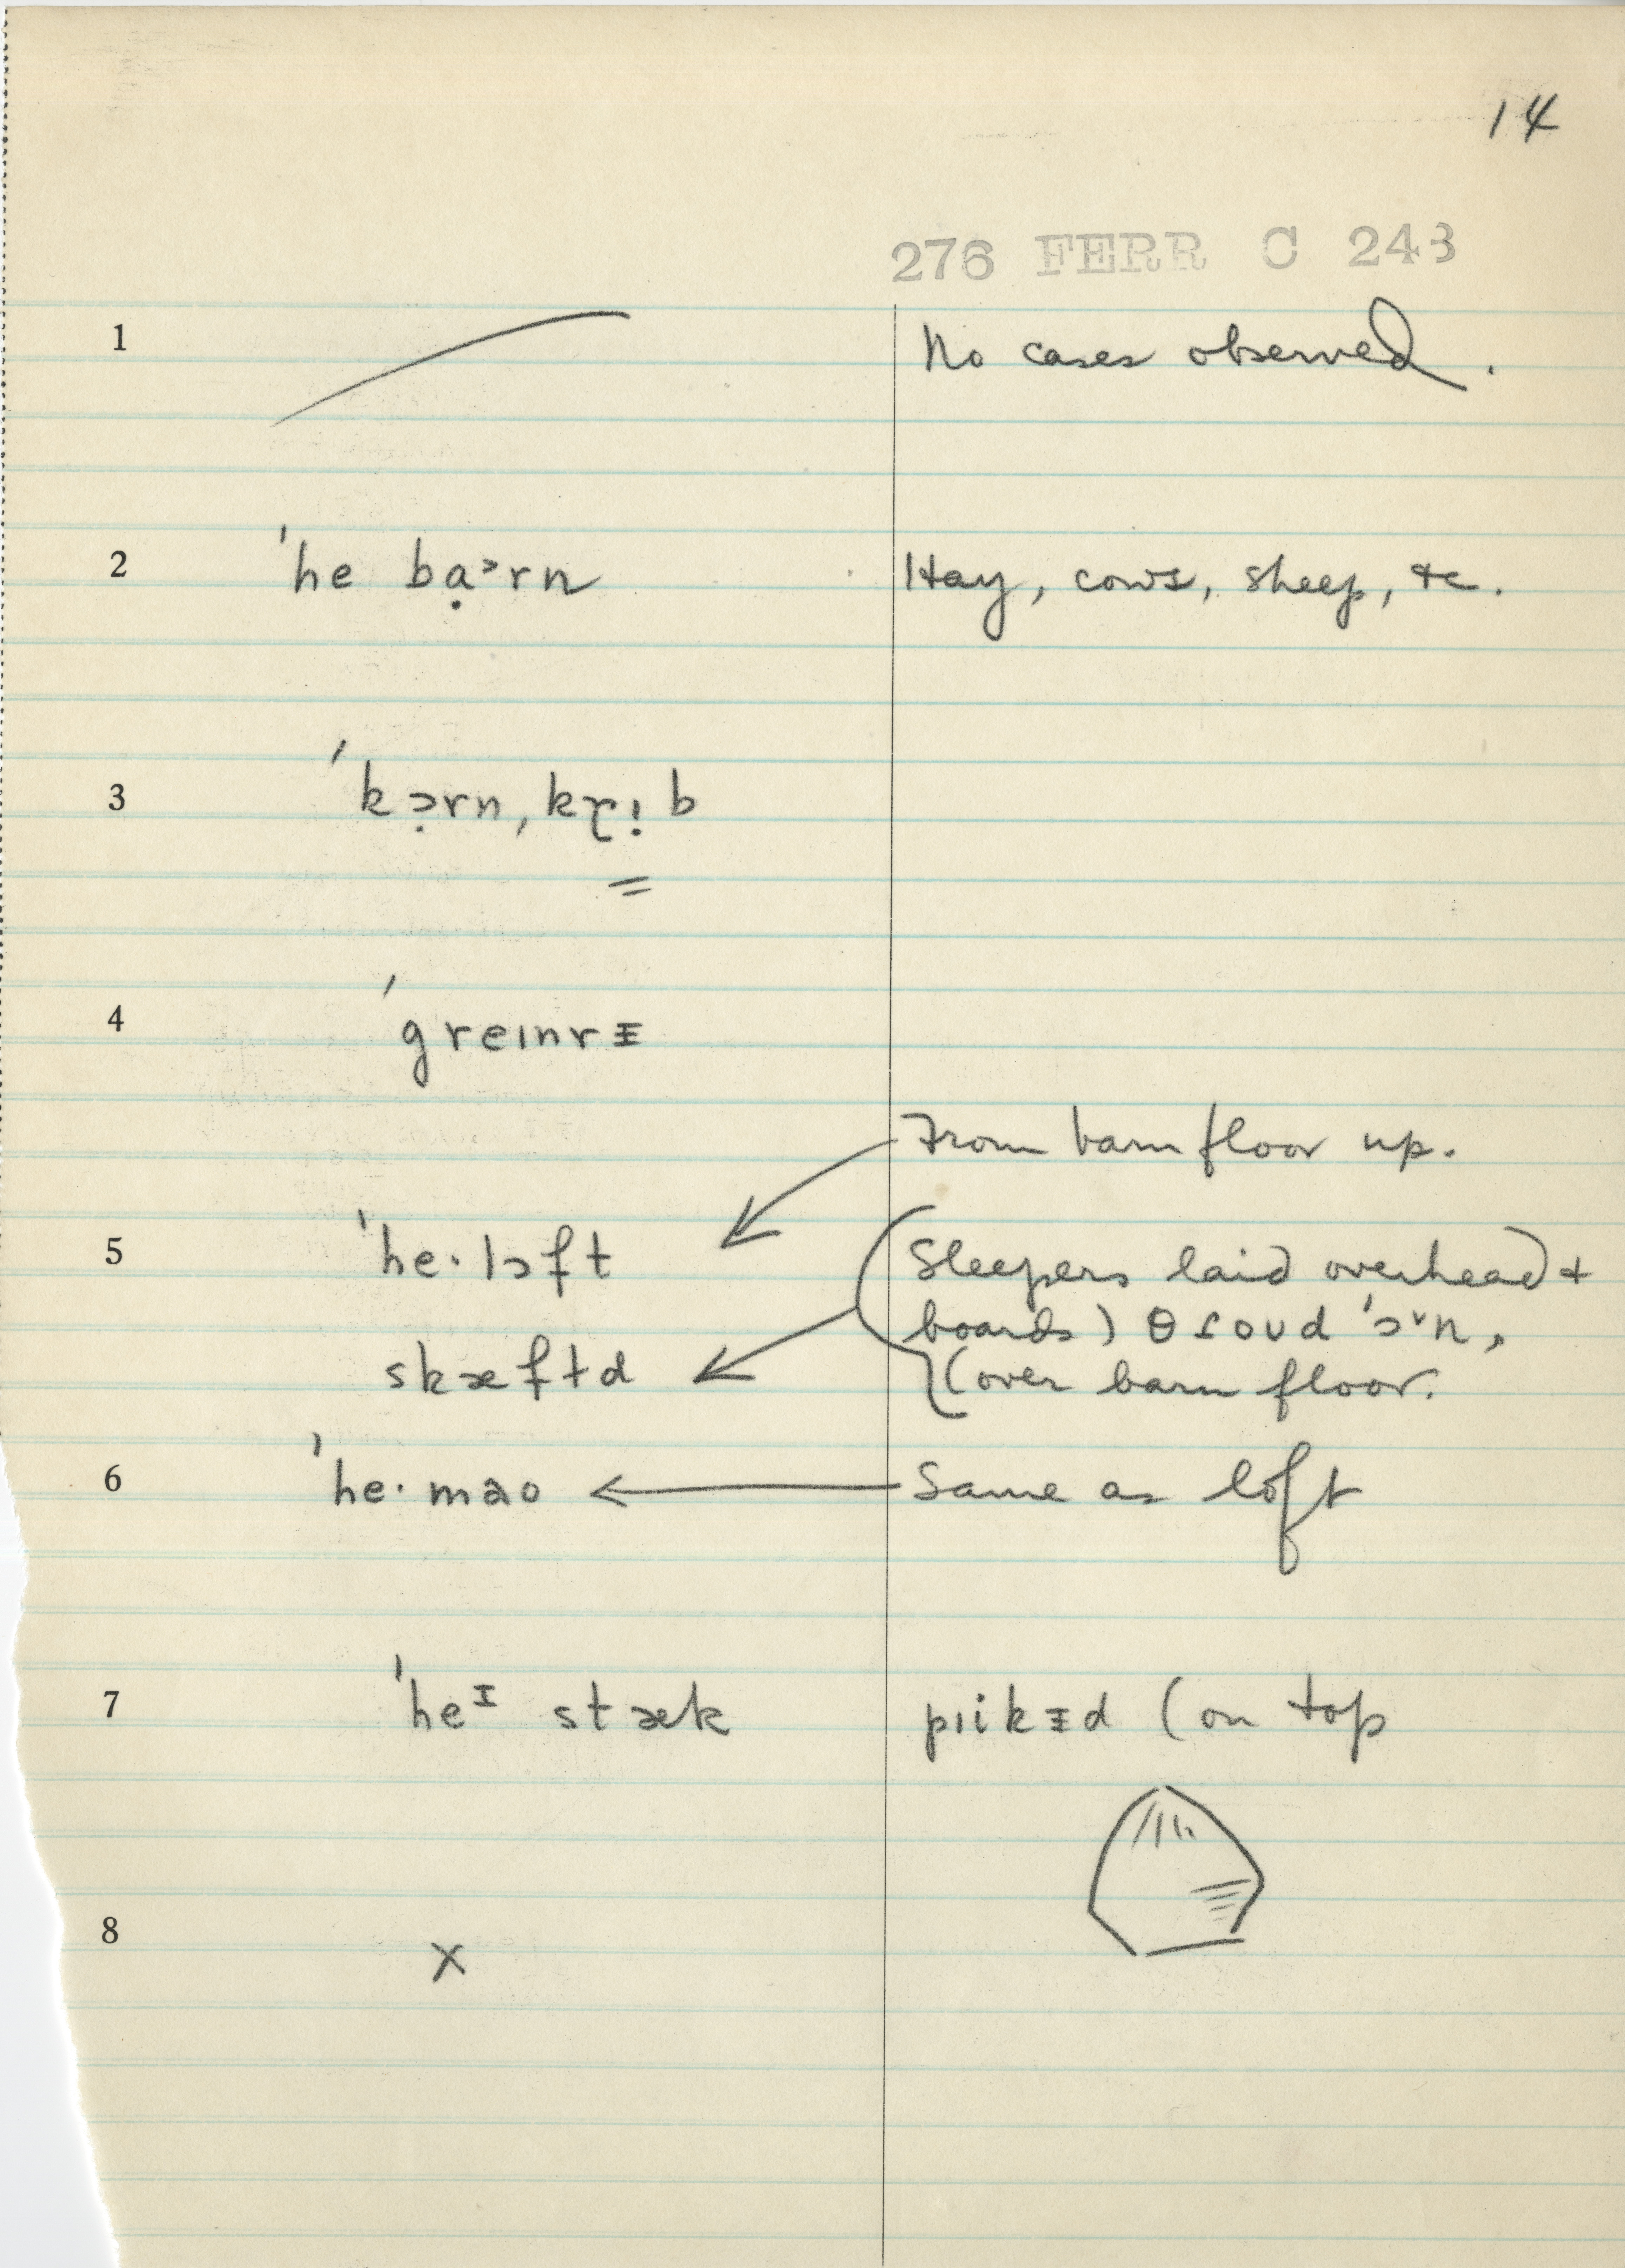 14
276 FERR C 243
1 No cases observed.
2 ˈhe bɑ̣˃rn Hay, cows, sheep, &c.
3 ˈkɔ̣rn, krɪ̣b
4 ˈgreɪnrᵻ
From barn floor up.
5 ˈhe·lɔft (Sleepers laid overhead &
boards) θɾoʊd ˈɔ˅n,
skæftd (over barn floor.
6 ˈhe·mao Same as loft
7 ˈheᶦ stæk pɪikᵻd (on top
8 x